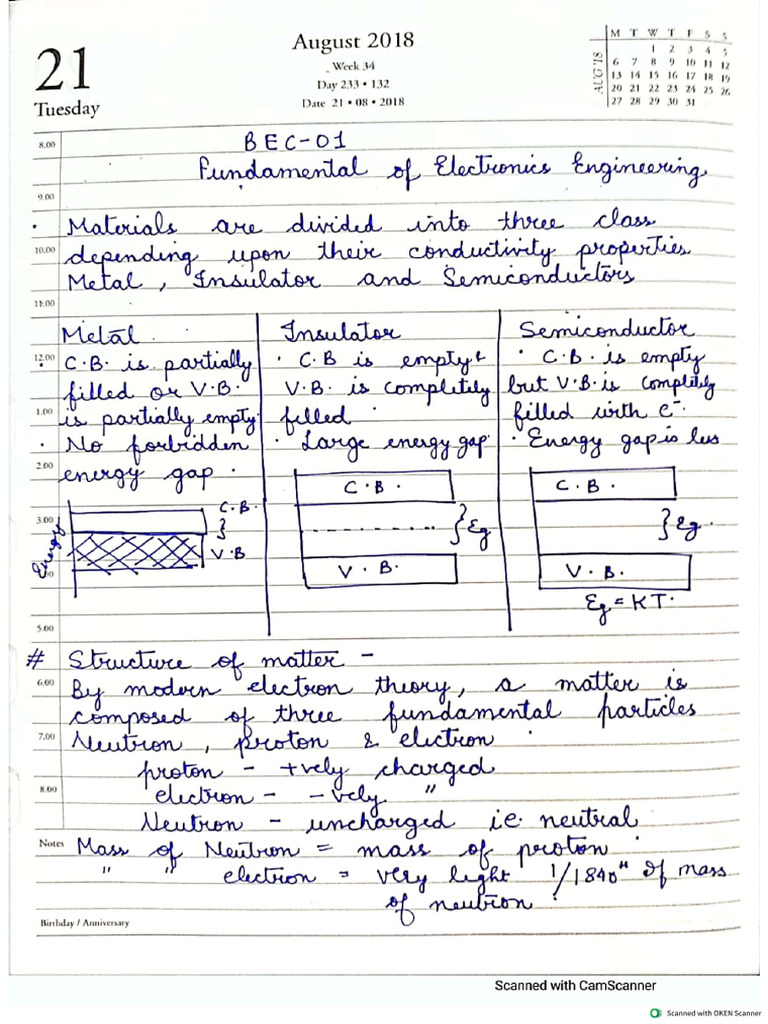 August 2018
21
Tuesday
Week 34
Day 233 • 132
Date 21 • 08 • 2018
AUG '18
M T W T F S S
1 2 3 4 5
6 7 8 9 10 11 12
13 14 15 16 17 18 19
20 21 22 23 24 25 26
27 28 29 30 31
8.00
BEC-01
Fundamental of Electronics Engineering
9.00
· Materials are divided into three class
10.00
depending upon their conductivity properties
Metal, Insulator and Semiconductors
11.00
Metal
12.00
· C.B. is partially
filled or V.B.
1.00
is partially empty.
· No forbidden
2.00
energy gap.
C.B.
3.00
Energy
}
V.B
Insulator
· C.B is empty &
V.B. is completely
filled
· Large energy gap.
C.B.
} Eg
V.B.
Semiconductor
· C.B. is empty
but V.B. is complitily
filled with e-.
· Energy gap is less
C.B.
} Eg.
V.B.
Eg = KT.
5.00
# Structure of matter -
6.00
By modern electron theory, a matter is
composed of three fundamental particles
7.00
Neutron, proton & electron.
proton - +vely charged
8.00
electron - -vely "
Neutron - uncharged i.e. neutral
Notes
Mass of Neutron = mass of proton.
" " electron = very light 1/1840th of mass
of neutron.
Birthday / Anniversary
Scanned with CamScanner
Scanned with OKEN Scanner